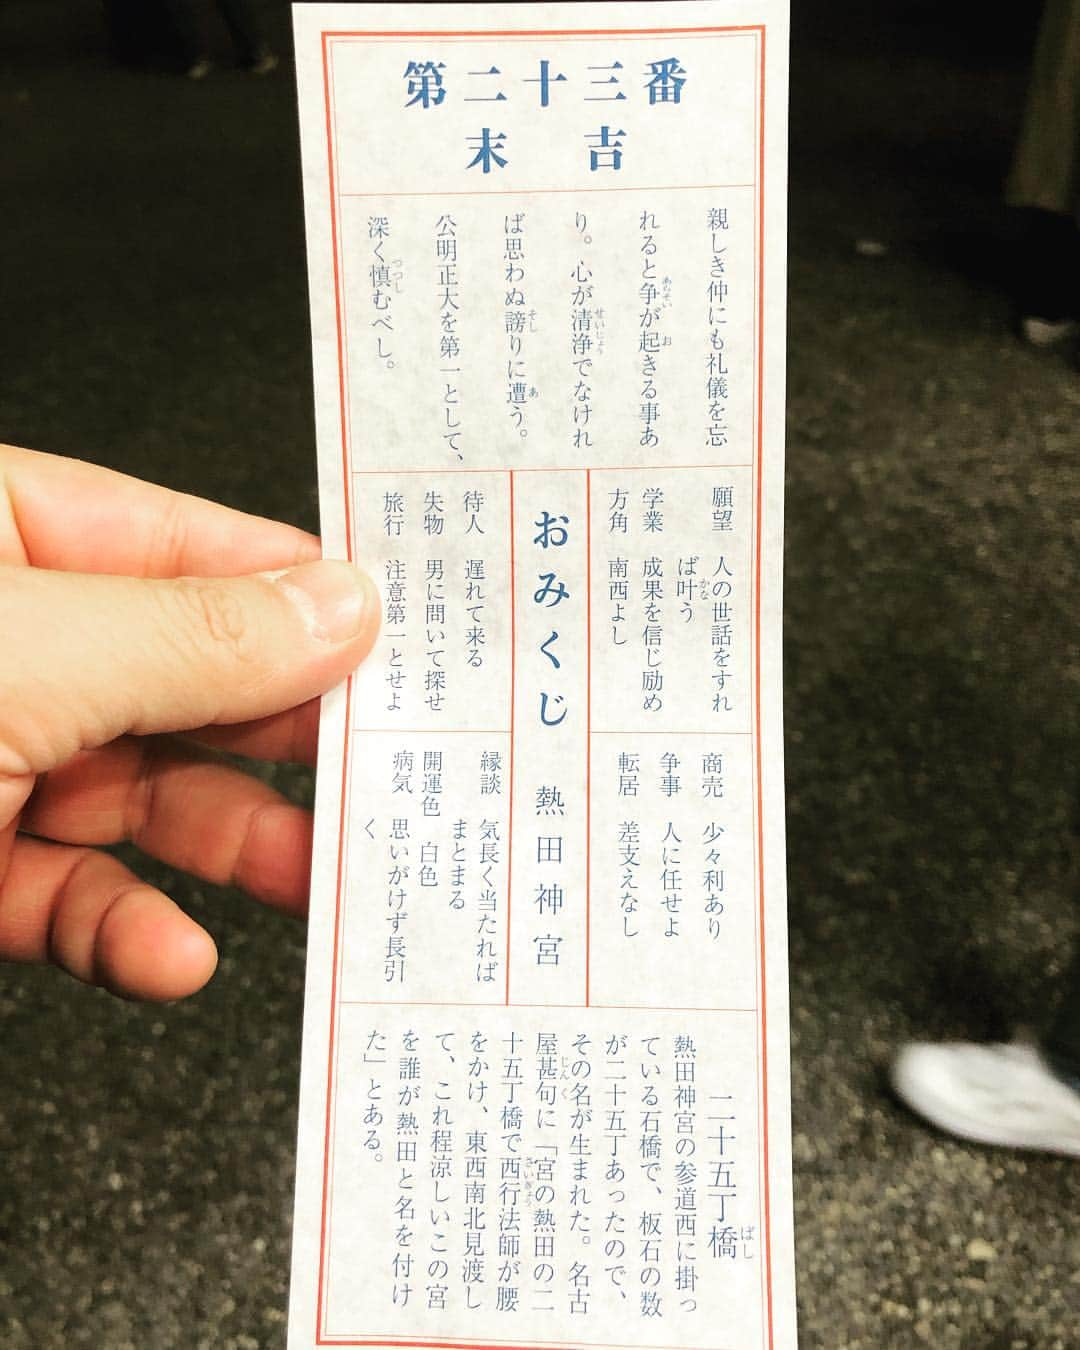 第二十三番
末吉
親しき仲にも礼儀を忘
れると争が起きる事あ
り。心が清浄でなけれ
ば思わぬ謗りに遭う。
公明正大を第一として、
深く慎むべし。
願望 人の世話をすれ
ば叶う
学業 成果を信じ励め
方角 南西よし
おみくじ 熱田神宮
待人 遅れて来る
失物 男に問いて探せ
旅行 注意第一とせよ
商売 少々利あり
争事 人に任せよ
転居 差支えなし
縁談 気長く当たれば
まとまる
開運色 白色
病気 思いがけず長引
く
二十五丁橋
熱田神宮の参道西に掛っ
ている石橋で、板石の数
が二十五丁あったので、
その名が生まれた。名古
屋甚句に「宮の熱田の二
十五丁橋で西行法師が腰
をかけ、東西南北見渡し
て、これ程涼しいこの宮
を誰が熱田と名を付け
た」とある。